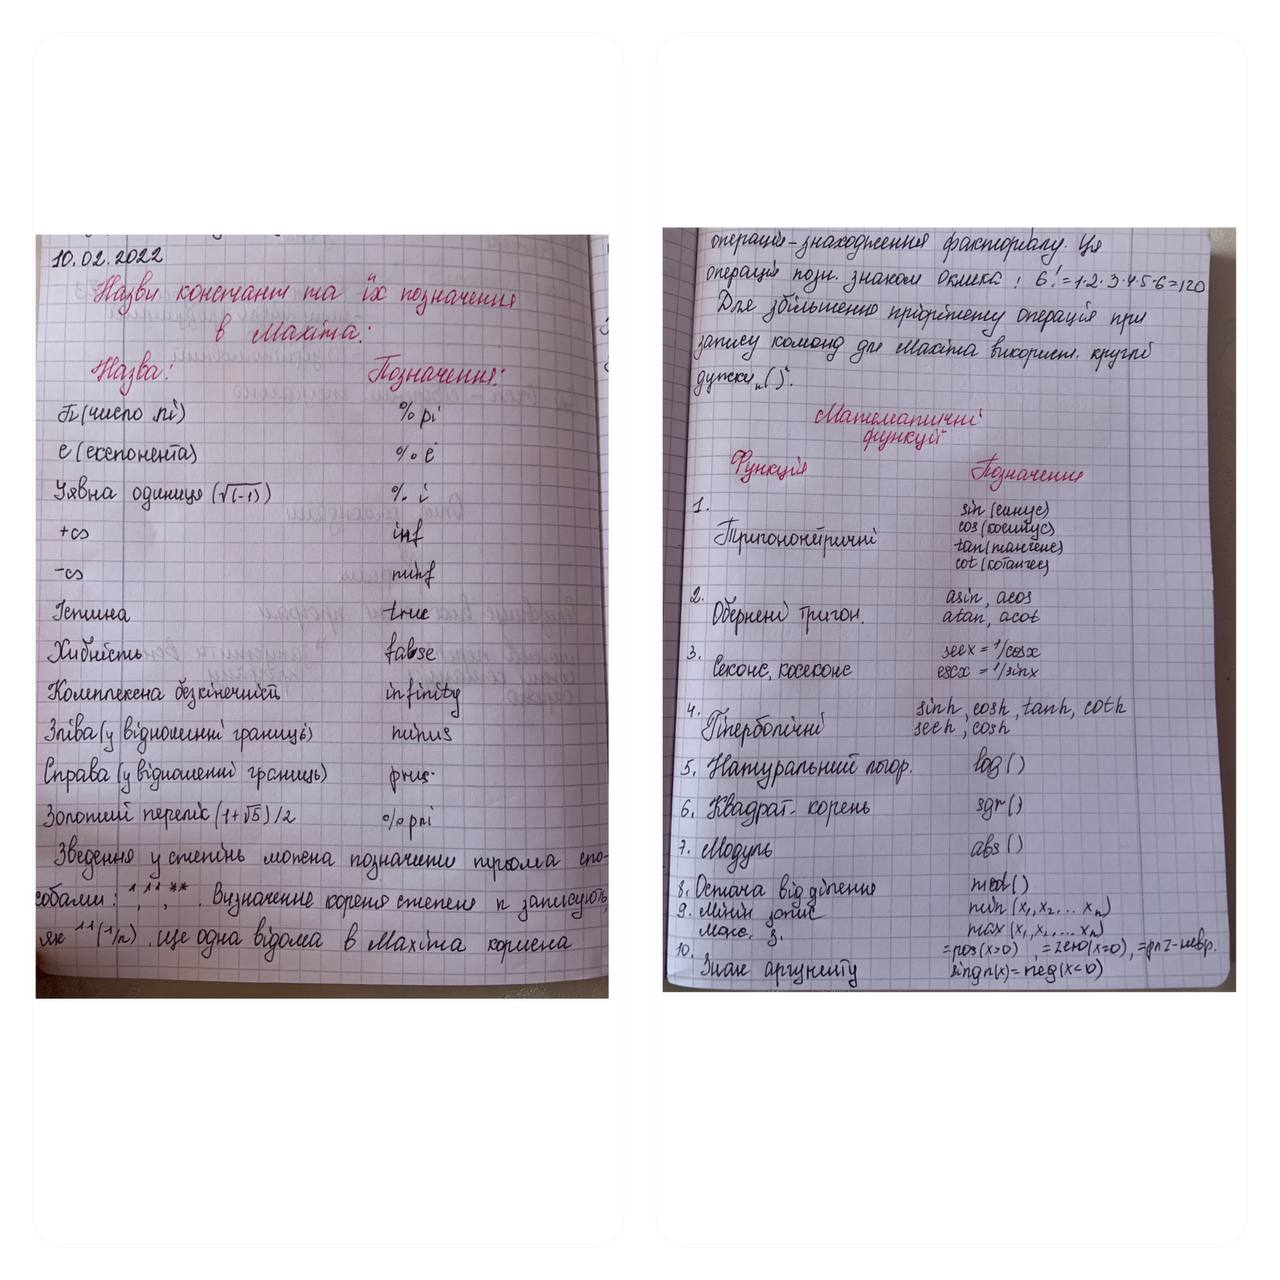 10.02.2022
Назви констант та їх позначення
в Maxima:
Назва: Позначення:
П (число пі) %pi
e (експонента) %e
Уявна одиниця (√(-1)) %i
+∞ inf
-∞ minf
Істина true
Хибність false
Комплексна безкінечність infinity
Зліва (у відношенні границь) minus
Справа (у відношенні границь) plus
Золотий переріз (1+√5)/2 %phi
Зведення у степінь можна позначити трьома спо-
собами: ^, ^^, **. Визначення кореня степеня n записують,
як ^^(1/n). Ще одна відома в Maxima корисна
операція - знаходження факторіалу. Ця
операція позн. знаком оклика: 6!=1·2·3·4·5·6=120
Для збільшення пріорітету операція при
запису команд для Maxima використ. круглі
дужки „( )“.
Математичні
функції
Функція Позначення
1. Тригонометричні sin (синус)
cos (косинус)
tan (тангенс)
cot (котангес)
2. Обернені тригон. asin, acos
atan, acot
3. Секонс, косеконс secx = 1/cosx
cscx = 1/sinx
4. Гіперболічні sinh, cosh, tanh, coth
sech, cosh
5. Натуральний логор. log()
6. Квадрат. корень sgr()
7. Модуль abs()
8. Остача від ділення mod()
9. Мінім запис min (x₁, x₂ ... xₙ)
Макс. з. max (x₁, x₂ ... xₙ)
10. =pos(x>0), =zero(x=0), =pnz-невр.
Знак аргументу singn(x)=neg(x<0)